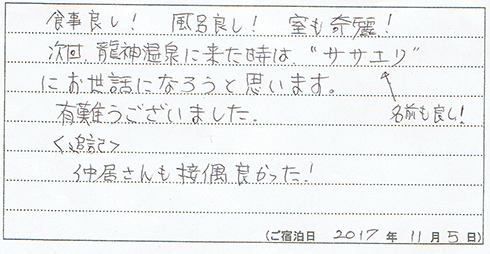 食事良し! 風呂良し! 室も奇麗!
次回、龍神温泉に来た時は、“ササユリ”
にお世話になろうと思います。
名前も良し!
有難うございました。
<追記>
仲居さんも接偶良かった!
(ご宿泊日 2017年 11月 5日)